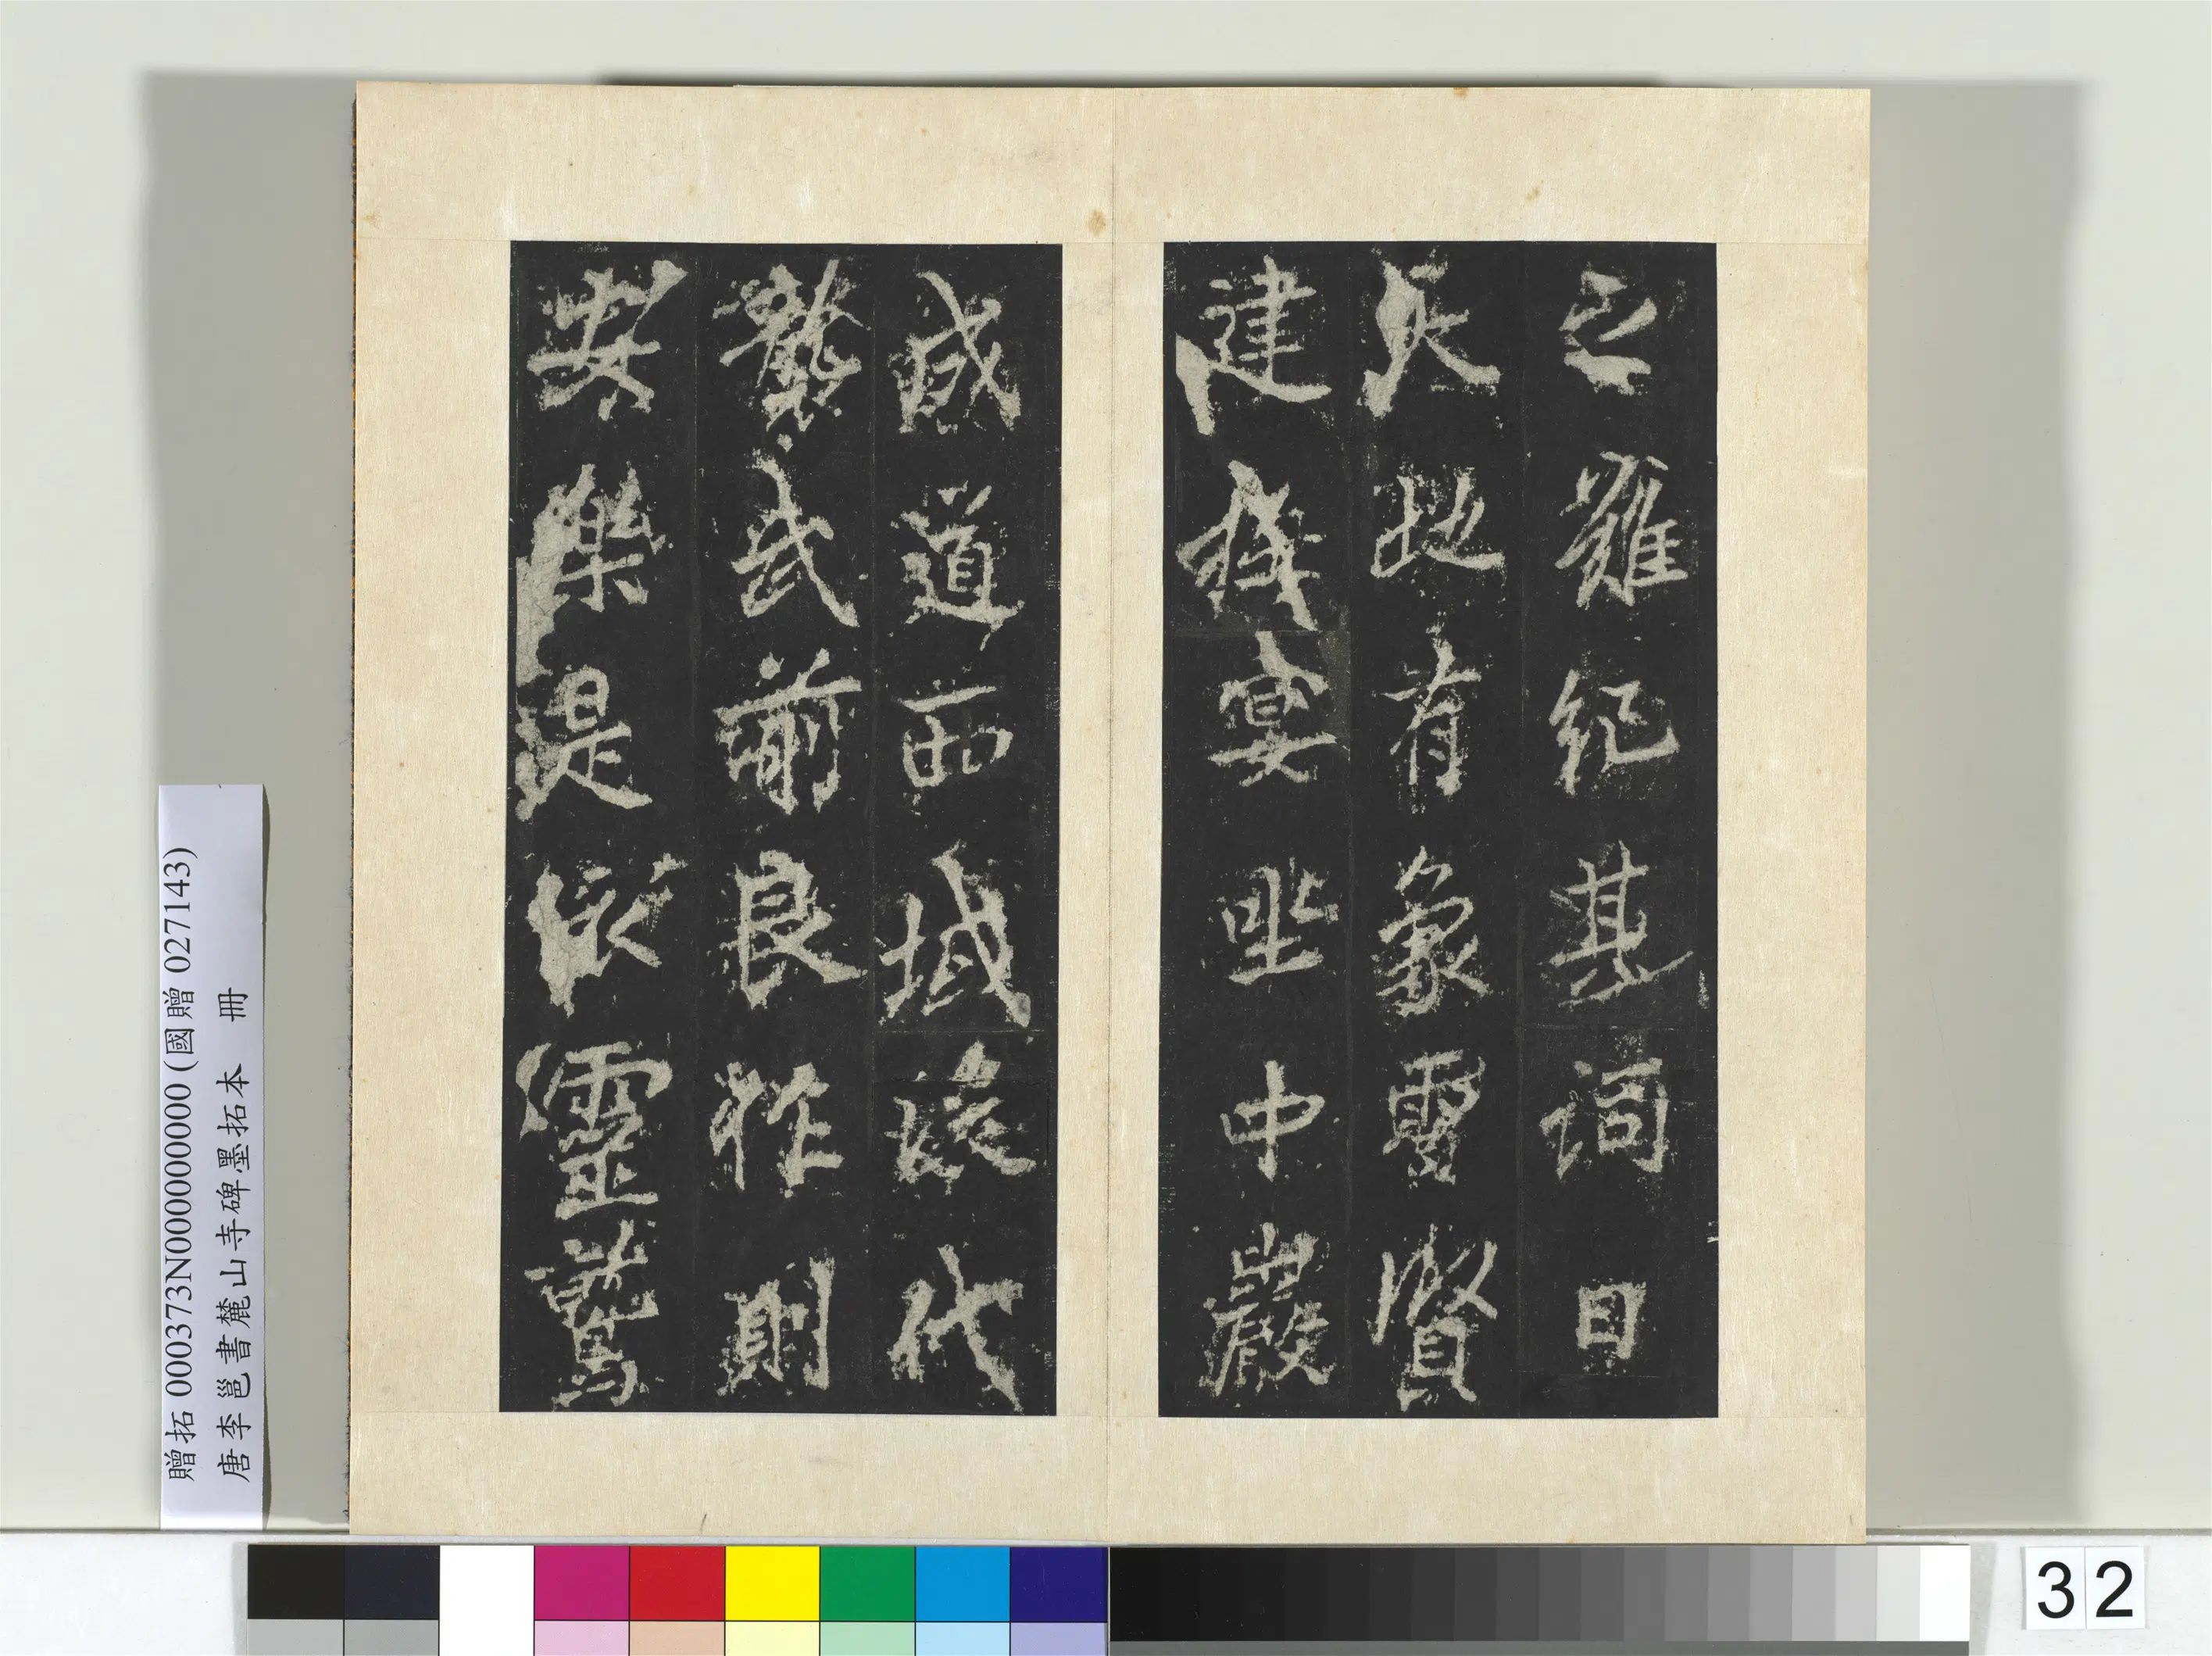 之難紀其詞曰
天地有象聖賢
建極宴坐中巖
成道西域後代
襲武前良作則
安樂是依靈鷲
贈拓 000373N000000000 (國贈 027143)
唐李邕書麓山寺碑墨拓本 冊
32